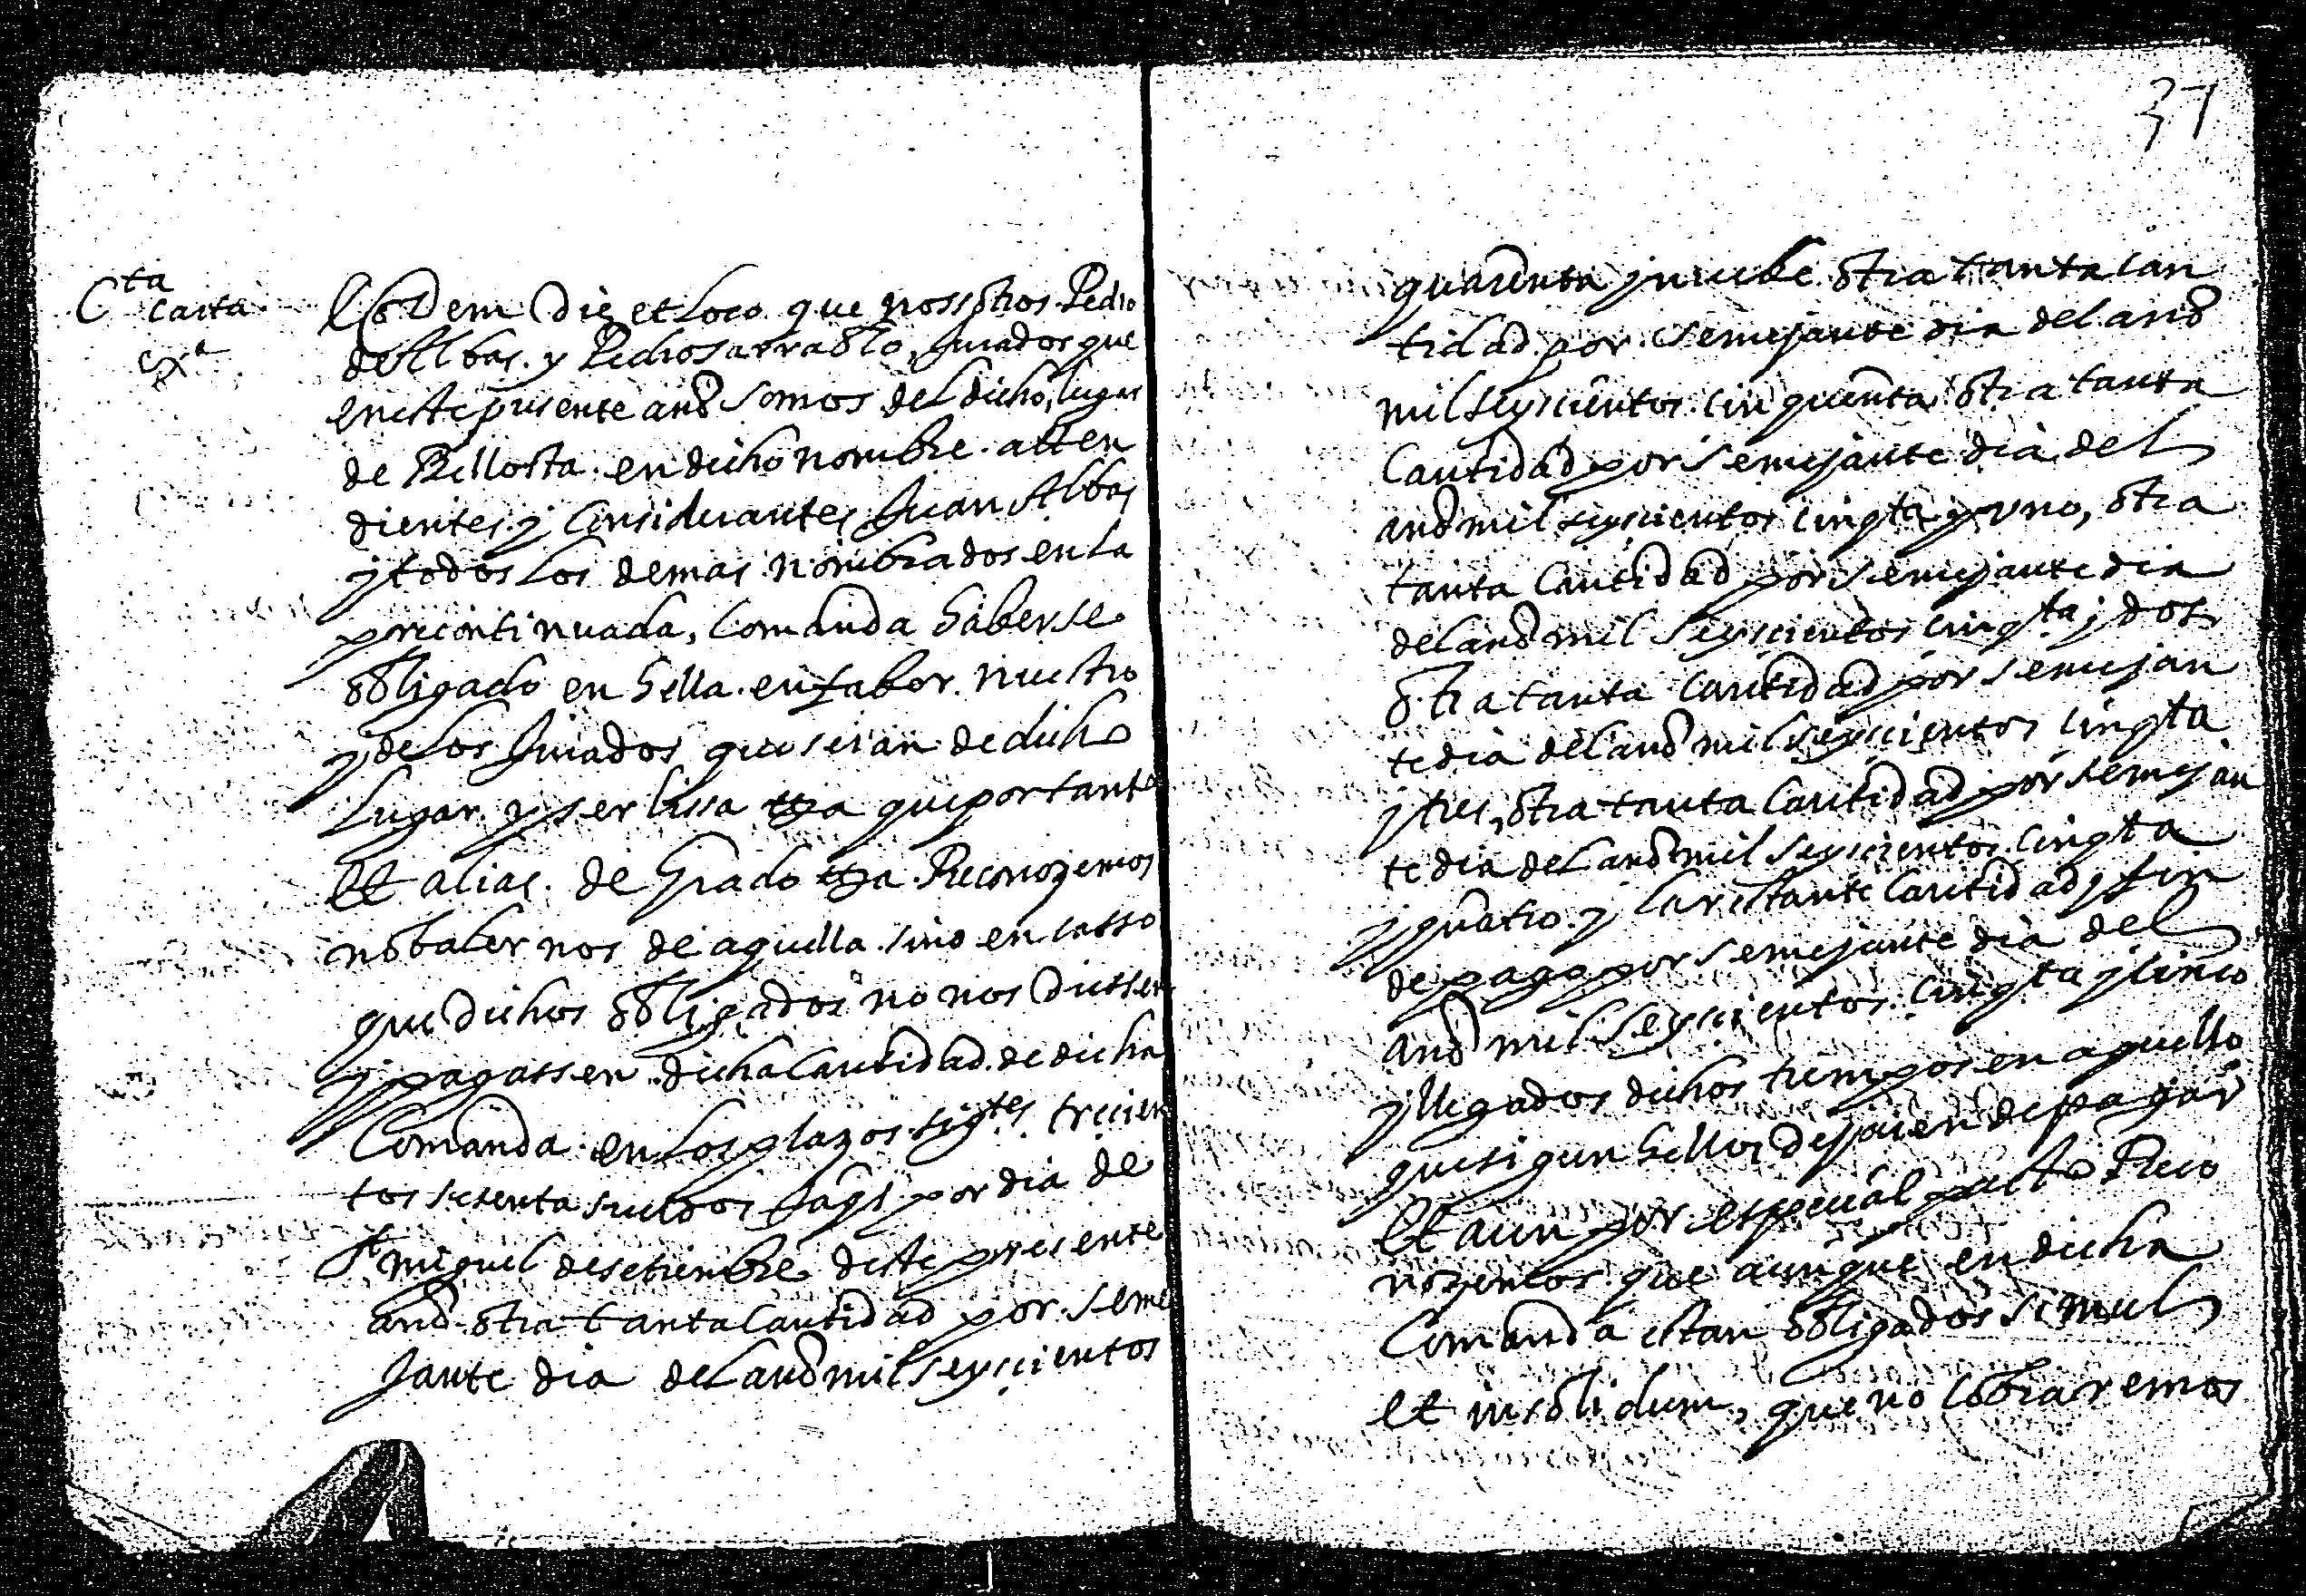 Cta carta
exa
Eodem Die et Loco que nosotros Pedro
de Albas y Pedro Sarrablo, Jurados que
en este presente año somos del dicho lugar
de Bellosta en dicho nombre atten
dientes y considerantes Juan Albas
y todos los demas nombrados en la
precontinuada, Comanda haberse
obligado en hella en fabor nuestro
y de los Jurados que seran de dicho
Lugar y ser lissa etza que por tante
Et alias de Grado etza Reconozemos
no baler nos de aquella sino en casso
que dichos obligados no nos diessen
y pagassen dicha Cantidad de dicha
Comanda en los plazos sigtes trecien
tos sesenta sueldos Jaqs por dia de
St miguel de setiembre deste presente
año otra tanta Cantidad por seme
Jante dia del año mil seyscientos
37
quarenta y nuebe otra tanta can
tidad por semejante dia del año
mil seyscientos cinquenta otra tanta
Cantidad por semejante dia del
año mil seyscientos cinqta y uno, otra
tanta Cantidad por semejante dia
del año mil seyscientos cinqta y dos
otra tanta Cantidad por semejan
te dia del año mil seyscientos cinqta
y tres, otra tanta Cantidad por semejan
te dia del año mil seyscientos cinqta
y quatro y la restante Cantidad y fin
de pago por semejante dia del
año mil seyscientos cinqta y cinco
y llegados dichos tiempos en aquello
que sigun hellos dejaren de pagar
Et aun por especial pacto Reco
nozemos que aunque en dicha
Comanda estan obligados simul
et insolidum, que no cobraremos